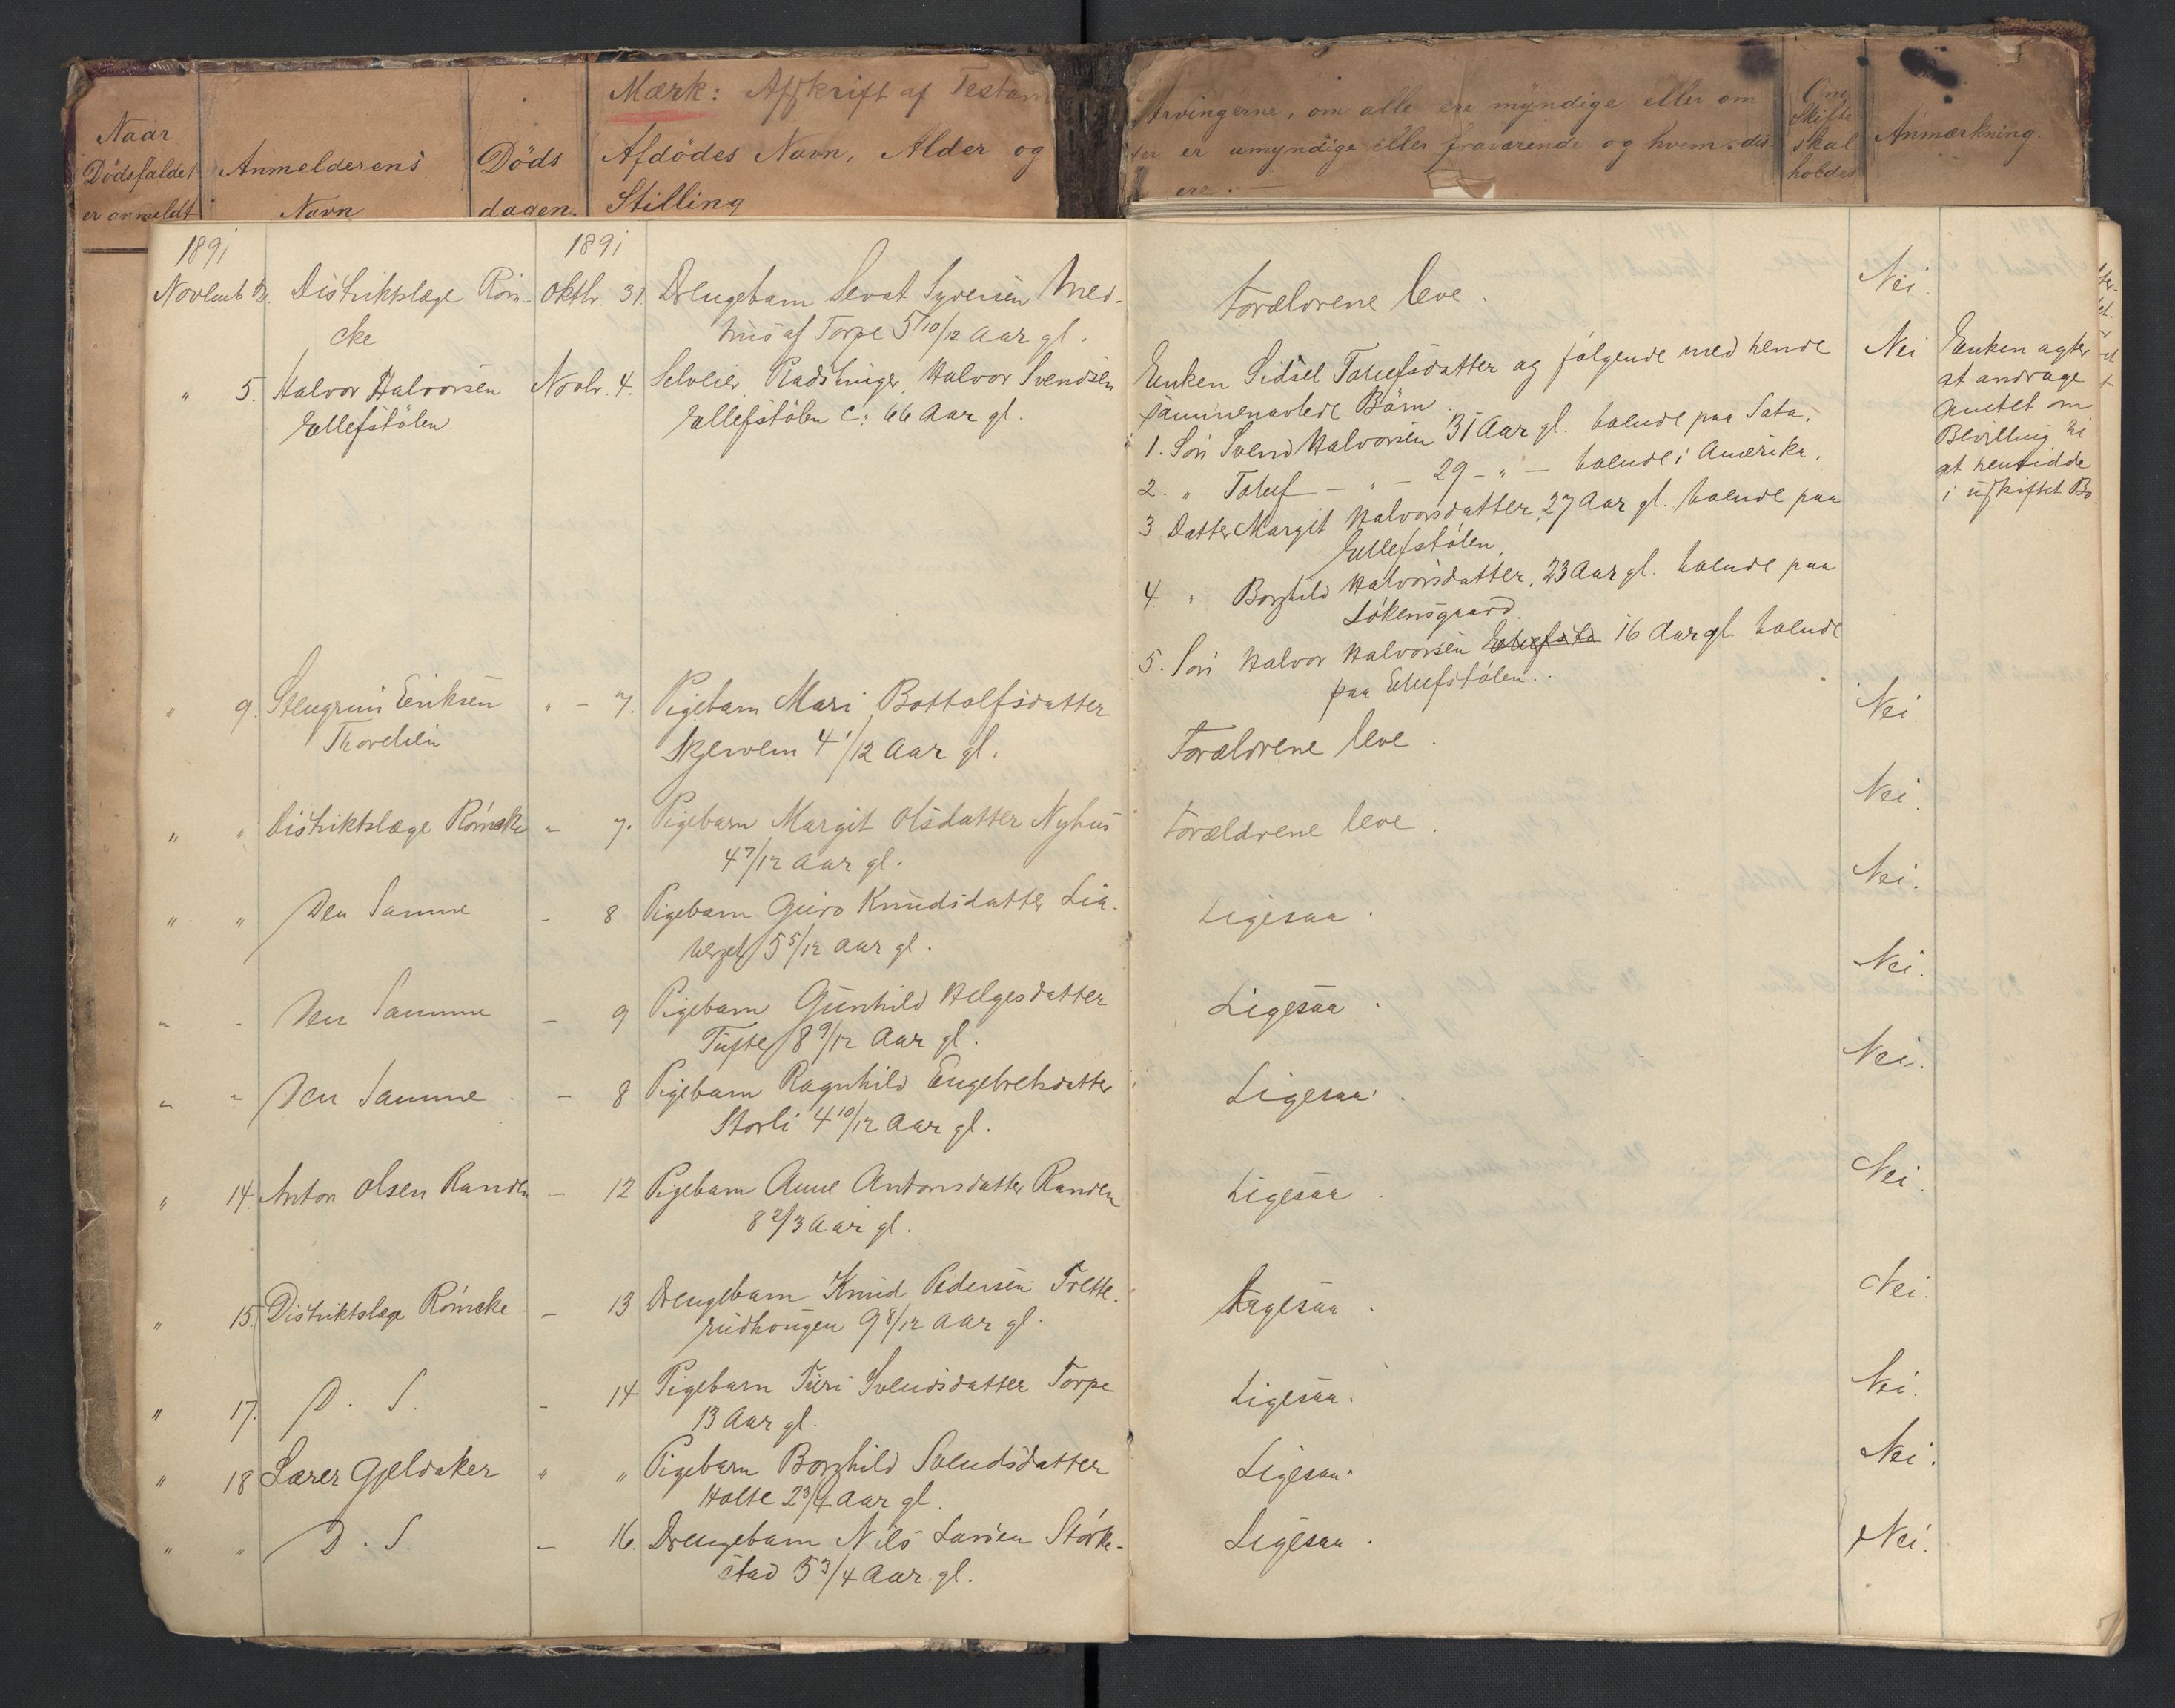 Mærk: Afskrift af Testam
Naar
Dödsfaldet
er anmeldt
Anmelderens
Navn
Döds
dagen.
Afdödes Navn, Alder og
Stilling
Arvingerne, om alle ere myndige eller om
der er umyndige eller fraværende og hvem det
ere.
Om
Skifte
skal
holdes
Anmærkning.
1891
1891
Novemb Distriktslæge Röm- Oktbr. 31. Drengebarn Sevat Syversen Med-
cke
hus af Torpe 5 10/12 Aar gl.
Forældrene leve.
Nei
" 5. Halvor Halvorsen Novbr. 4. Selveier, Halvor Svendsen
Ellefstölen
Ellefstölen c: 66 Aar gl.
Enken Sidsel Tolefsdatter og følgende med hende
sammenavlede Börn
1. Sön Svend Halvorsen 31 Aar gl. boende paa Sata.
2. " Tolef — " — 29 - " — boende i Amerika.
3 Datter Margit Halvorsdatter, 27 Aar gl. boende paa
Ellefstölen.
4. " Borghild Halvorsdatter, 23 Aar gl. boende paa
Lökensgaard.
5. Sön Halvor Halvorsen 16 Aar gl. boende
paa Ellefstölen.
Nei
Enken agter
at andrage
Amtet om
Bevilling til
at hensidde
i uskiftet Bo.
" 9. Stengrim Eriksen " - 7. Pigebarn Mari Bottolfsdatter
Thorelien
Skjervem 4 1/12 Aar gl.
Forældrene leve.
Nei.
" " Distriktslæge Römcke - 7. Pigebarn Margit Olsdatter Nyhus
4 7/12 Aar gl.
Forældrene leve.
Nei.
" " Den Samme - 8 Pigebarn Guro Knudsdatter Lia-
berget 5 5/12 Aar gl.
Ligesaa.
Nei.
" - Den Samme - 9 Pigebarn Gunhild Helgesdatter
Tufte 8 9/12 Aar gl.
Ligesaa.
Nei.
" - Den Samme - 8 Pigebarn Ragnhild Engebretsdatter
Storli 4 10/12 Aar gl.
Ligesaa.
Nei.
" 14. Anton Olsen Randen - 12 Pigebarn Anne Antonsdatter Randen
8 2/3 Aar gl.
Ligesaa.
Nei.
" 15. Distriktslæge Römcke - 13 Drengebarn Knud Pedersen Trette-
rudhougen 9 8/12 Aar gl.
Ligesaa.
Nei.
" 17. D. S. - 14 Pigebarn Turi Svendsdatter Torpe
13 Aar gl.
Ligesaa.
Nei.
" 18 Lærer Gjeldaker " " Pigebarn Borghild Svendsdatter
Holte 2 3/4 Aar gl.
Ligesaa.
Nei.
" " D. S. - 16. Drengebarn Nils Larsen Störke-
stad 5 3/4 Aar gl.
Ligesaa.
Nei.